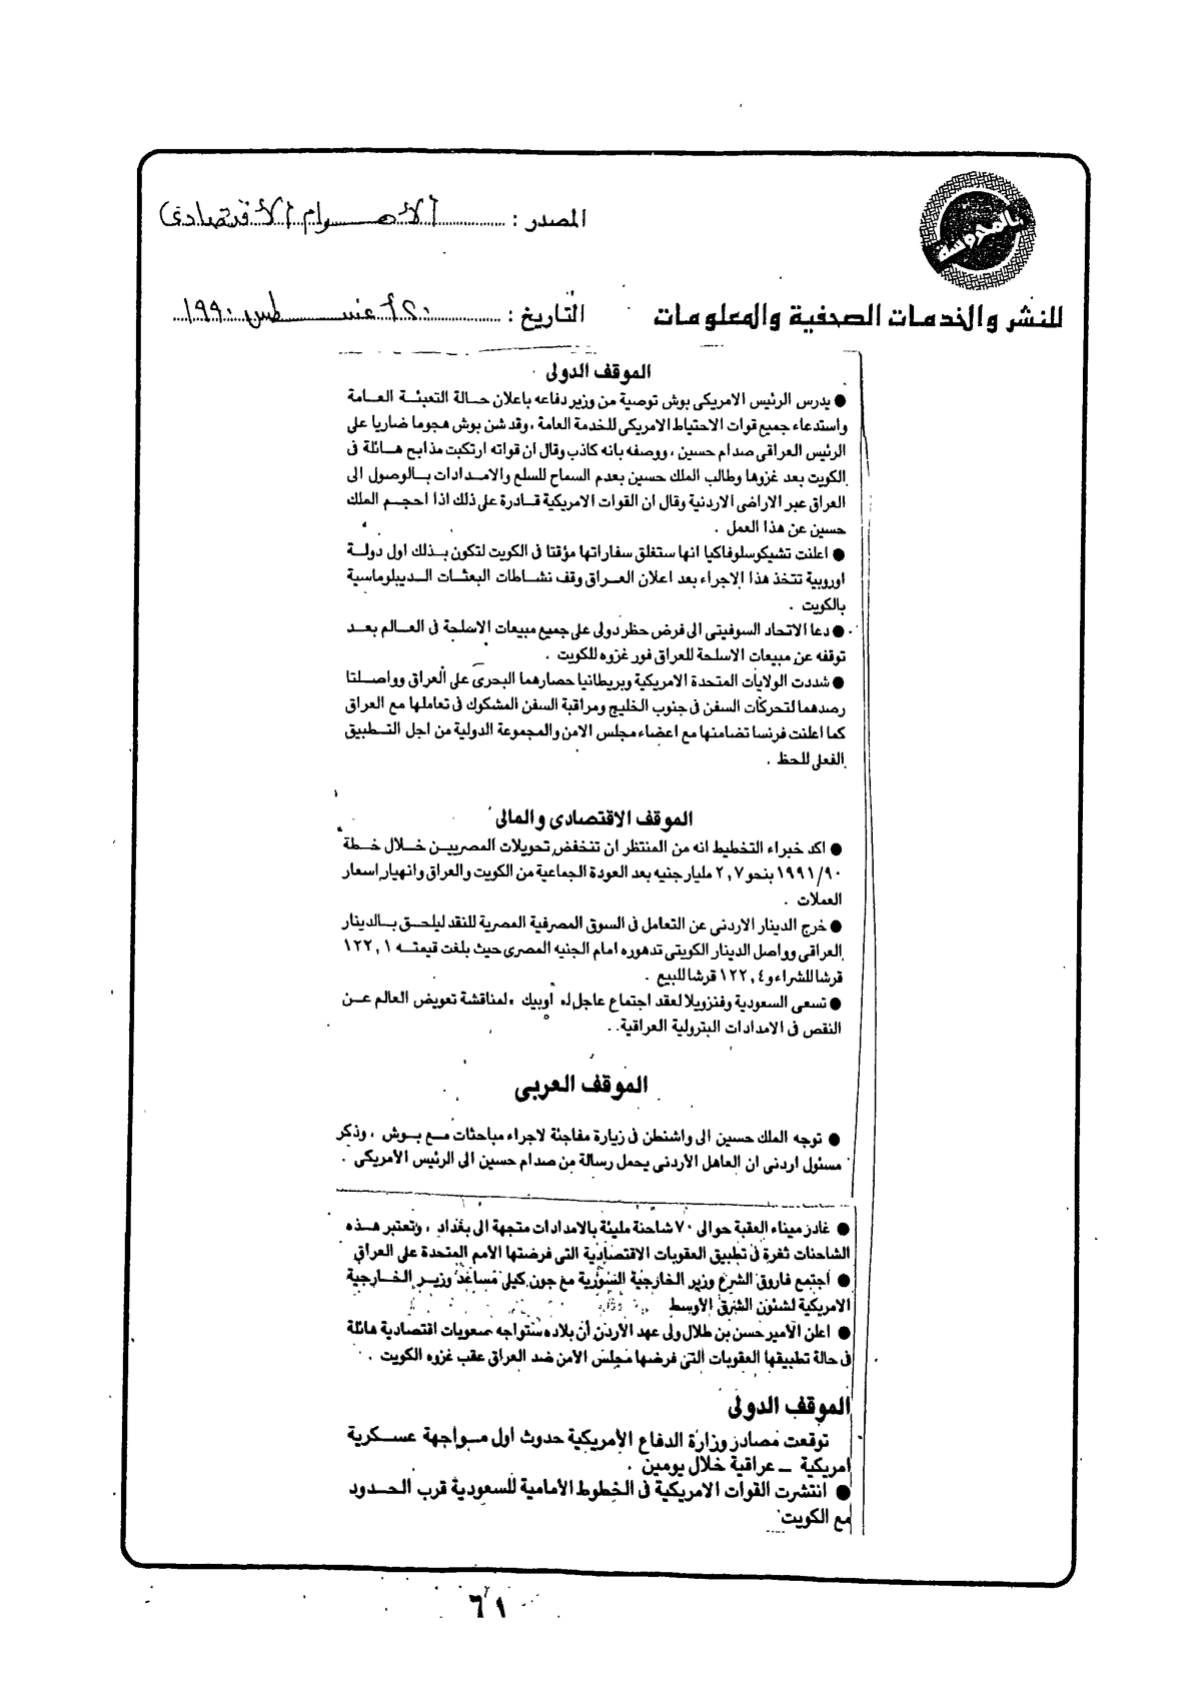 بالمحروسة
المصدر : الأهرام الاقتصادى
للنشر والخدمات الصحفية والمعلومات
التاريخ : ٢٠ أغسطس ١٩٩٠
الموقف الدولى
● يدرس الرئيس الامريكى بوش توصية من وزير دفاعه باعلان حالة التعبئة العامة
واستدعاء جميع قوات الاحتياط الامريكى للخدمة العامة ، وقد شن بوش هجوما ضاريا على
الرئيس العراقى صدام حسين ، ووصفه بانه كاذب وقال ان قواته ارتكبت مذابح هائلة فى
الكويت بعد غزوها وطالب الملك حسين بعدم السماح للسلع والامدادات بالوصول الى
العراق عبر الاراضى الاردنية وقال ان القوات الامريكية قادرة على ذلك اذا احجم الملك
حسين عن هذا العمل .
● اعلنت تشيكوسلوفاكيا انها ستغلق سفاراتها مؤقتا فى الكويت لتكون بذلك اول دولة
اوروبية تتخذ هذا الاجراء بعد اعلان العراق وقف نشاطات البعثات الديبلوماسية
بالكويت .
● دعا الاتحاد السوفيتى الى فرض حظر دولى على جميع مبيعات الاسلحة فى العالم بعد
توقفه عن مبيعات الاسلحة للعراق فور غزوه للكويت .
● شددت الولايات المتحدة الامريكية وبريطانيا حصارهما البحرى على العراق وواصلتا
رصدهما لتحركات السفن فى جنوب الخليج ومراقبة السفن المشكوك فى تعاملها مع العراق
كما اعلنت فرنسا تضامنها مع اعضاء مجلس الامن والمجموعة الدولية من اجل التطبيق
الفعلى للحظ .
الموقف الاقتصادى والمالى
● اكد خبراء التخطيط انه من المنتظر ان تنخفض تحويلات المصريين خلال خطة
١٩٩١/٩٠ بنحو ٢,٧ مليار جنيه بعد العودة الجماعية من الكويت والعراق وانهيار اسعار
العملات .
● خرج الدينار الاردنى عن التعامل فى السوق المصرفية المصرية للنقد ليلحق بالدينار
العراقى وواصل الدينار الكويتى تدهوره امام الجنيه المصرى حيث بلغت قيمته ١٢٢,١
قرشا للشراء و١٢٢,٤ قرشا للبيع .
● تسعى السعودية وفنزويلا لعقد اجتماع عاجل لـ أوبيك ، لمناقشة تعويض العالم عن
النقص فى الامدادات البترولية العراقية .
الموقف العربى
● توجه الملك حسين الى واشنطن فى زيارة مفاجئة لاجراء مباحثات مع بوش ، وذكر
مسئول اردنى ان العاهل الأردنى يحمل رسالة من صدام حسين الى الرئيس الأمريكى .
● غادر ميناء العقبة حوالى ٧٠ شاحنة مليئة بالامدادات متجهة الى بغداد ، وتعتبر هذه
الشاحنات ثغرة فى تطبيق العقوبات الاقتصادية التى فرضتها الأمم المتحدة على العراق
● اجتمع فاروق الشرع وزير الخارجية السورية مع جون كيلى مساعد وزير الخارجية
الامريكية لشئون الشرق الأوسط
● اعلن الأمير حسن بن طلال ولى عهد الأردن أن بلاده ستواجه صعوبات اقتصادية هائلة
فى حالة تطبيقها العقوبات التى فرضها مجلس الامن ضد العراق عقب غزوه الكويت .
الموقف الدولى
توقعت مصادر وزارة الدفاع الأمريكية حدوث اول مواجهة عسكرية
امريكية ــ عراقية خلال يومين .
● انتشرت القوات الامريكية فى الخطوط الأمامية للسعودية قرب الحدود
مع الكويت
٦١